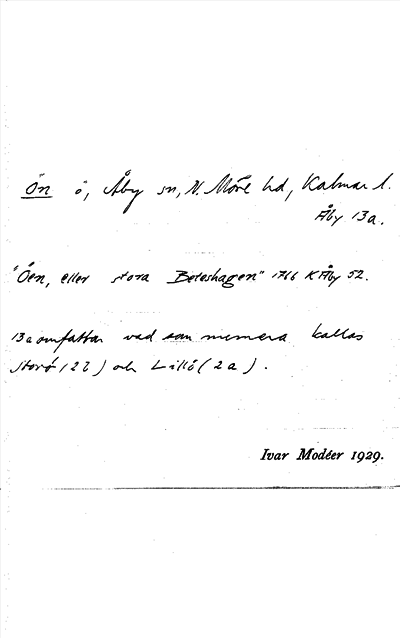 Ön ö, Åby sn, N. Möre hd, Kalmar l.
Åby 13a.
"Öen, eller stora Beteshagen" 1716 K Åby 52.
13a omfattar vad som numera kallas
Storö (2b) och Lillö (2a).
Ivar Modéer 1929.